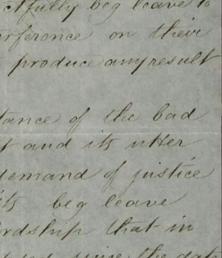 ctfully beg leave to
erference on their
produce any result
tance of the bad
t and its utter
demand of justice
its beg leave
ordship that in
the day